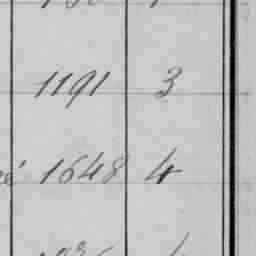 1191 3
1648 4